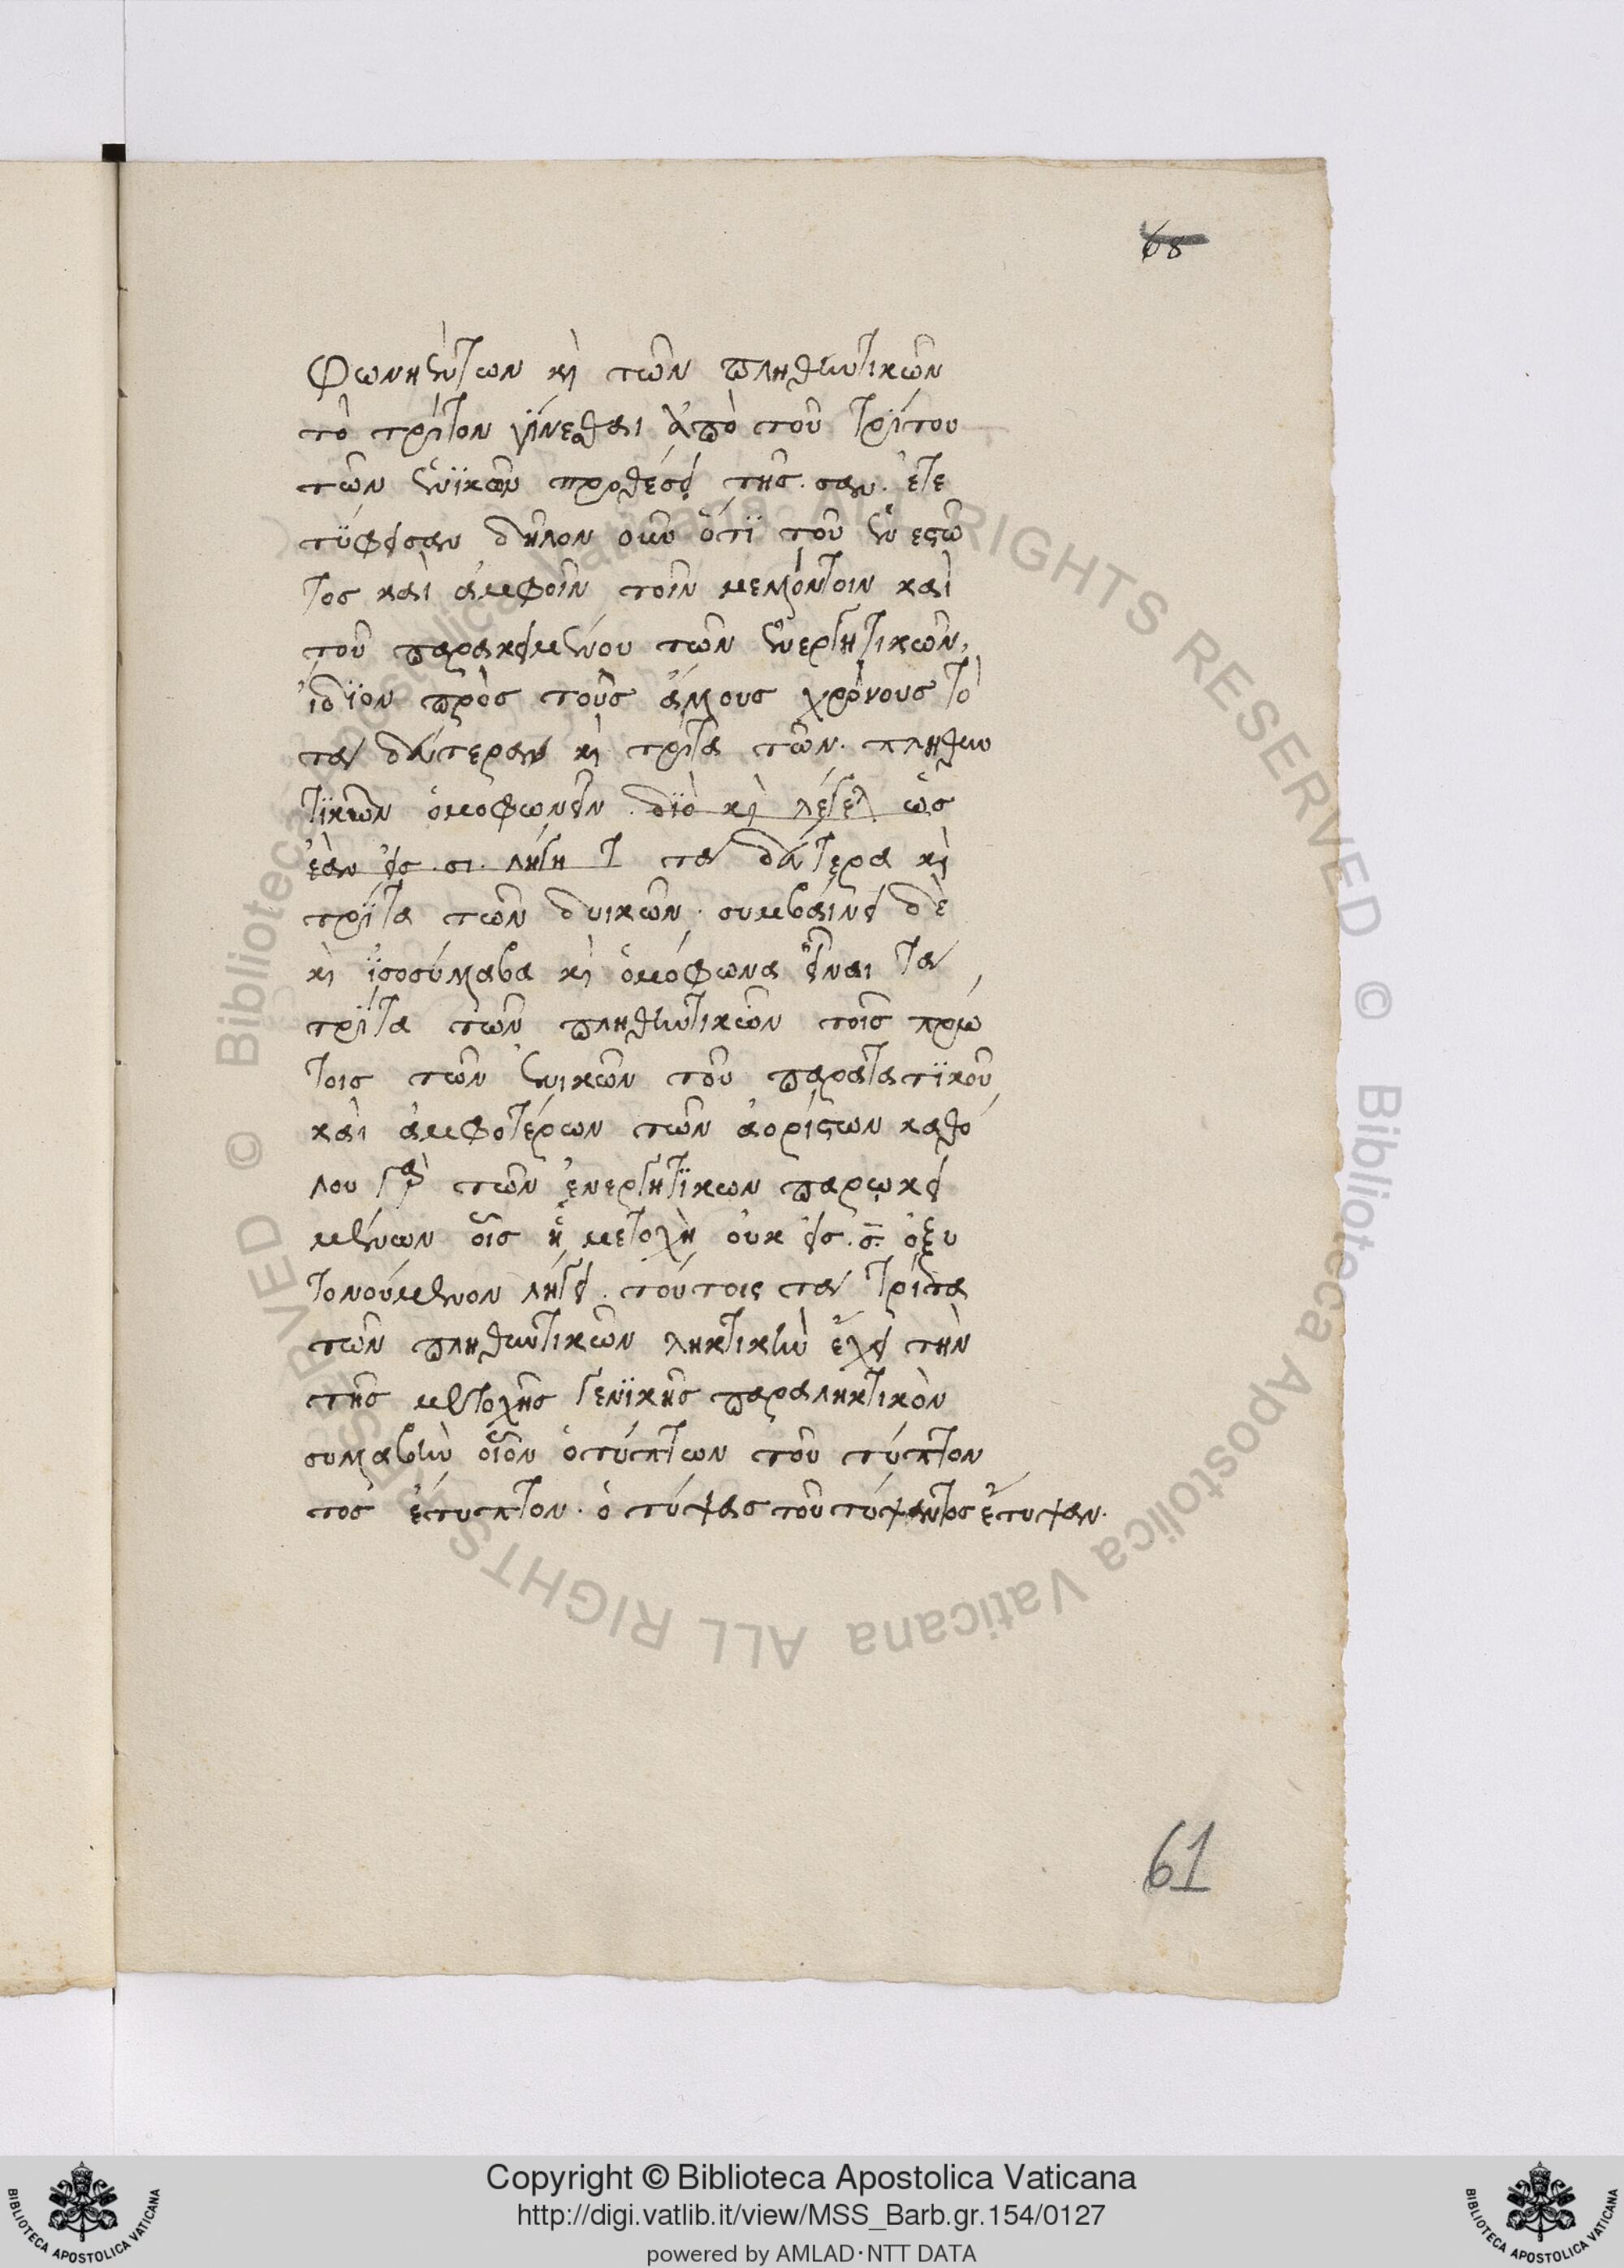 68
φωνηέντων κὶ τῶν πληθυντικῶν
τὸ τρίτον γίνεσθαι ἀπὸ τοῦ τρίτου
τῶν ἑνϊκῶν προθέσει τῆς. σαν. ἐτε
τύφεισαν δῆλον οὖν ὅτϊ τοῦ ἐνεστῶ
τος καὶ ἀμφοῖν τοῖν μελλόντοιν καὶ
τοῦ παρακειμένου τῶν ἐνεργητικῶν,
ἴδϊον πρὸς τοὺς ἄλλους χρόνους τὸ
τὰ δεύτερα κὶ τρίτα τῶν. πληθυν
τϊκῶν ὁμοφωνεῖν. δϊὸ κὶ λέγει ὡς
ἐὰν εἰς. σι. λήγη τὰ δεύτερα κὶ
τρίτα τῶν δυικῶν. συμβαίνει δὲ
κὶ ἰσοσύλλαβα κὶ ὁμόφωνα εἶναι τὰ
τρίτα τῶν πληθυντικῶν τοῖς πρώ
τοις τῶν ἑνικῶν τοῦ παρατατϊκοῦ
καὶ ἀμφοτέρων τῶν ἀορίστων καθό
λου γὰρ τῶν ἐνεργητϊκων παρωχει
μένων οἷς ἡ μετοχὴ οὐκ εἰς. ς. ὀξυ
τονούμενον λήγει. τούτοις τὰ τρίτα
τῶν πληθυντικῶν ληκτικὴν ἔχει τὴν
τῆς μετοχῆς γενϊκῆς παραληκτικὸν
συλλαβὴν οἷον ὁ τύπτων τοῦ τύπτον
τος ἔτυπτον. ὁ τύψας τοῦ τύψαντος ἔτυψαν.
61
Copyright © Biblioteca Apostolica Vaticana
http://digi.vatlib.it/view/MSS_Barb.gr.154/0127
powered by AMLAD·NTT DATA
BIBLIOTECA APOSTOLICA VATICANA
BIBLIOTECA APOSTOLICA VATICANA
© Biblioteca Apostolica Vaticana ALL RIGHTS RESERVED © Biblioteca Apostolica Vaticana ALL RIGHTS RESERVED